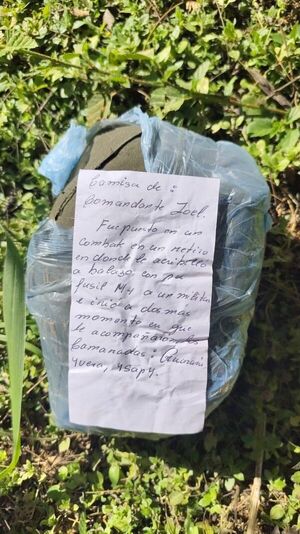 Camisa de:
Comandante Joel.
Fue puesto en un
combate en un retiro
en donde le acribillo
a balazo con su
fusil M4 a un militar
e inició a dar mas
momento en que
le acompañaron los
Camaradas:
yvera, ysapy.